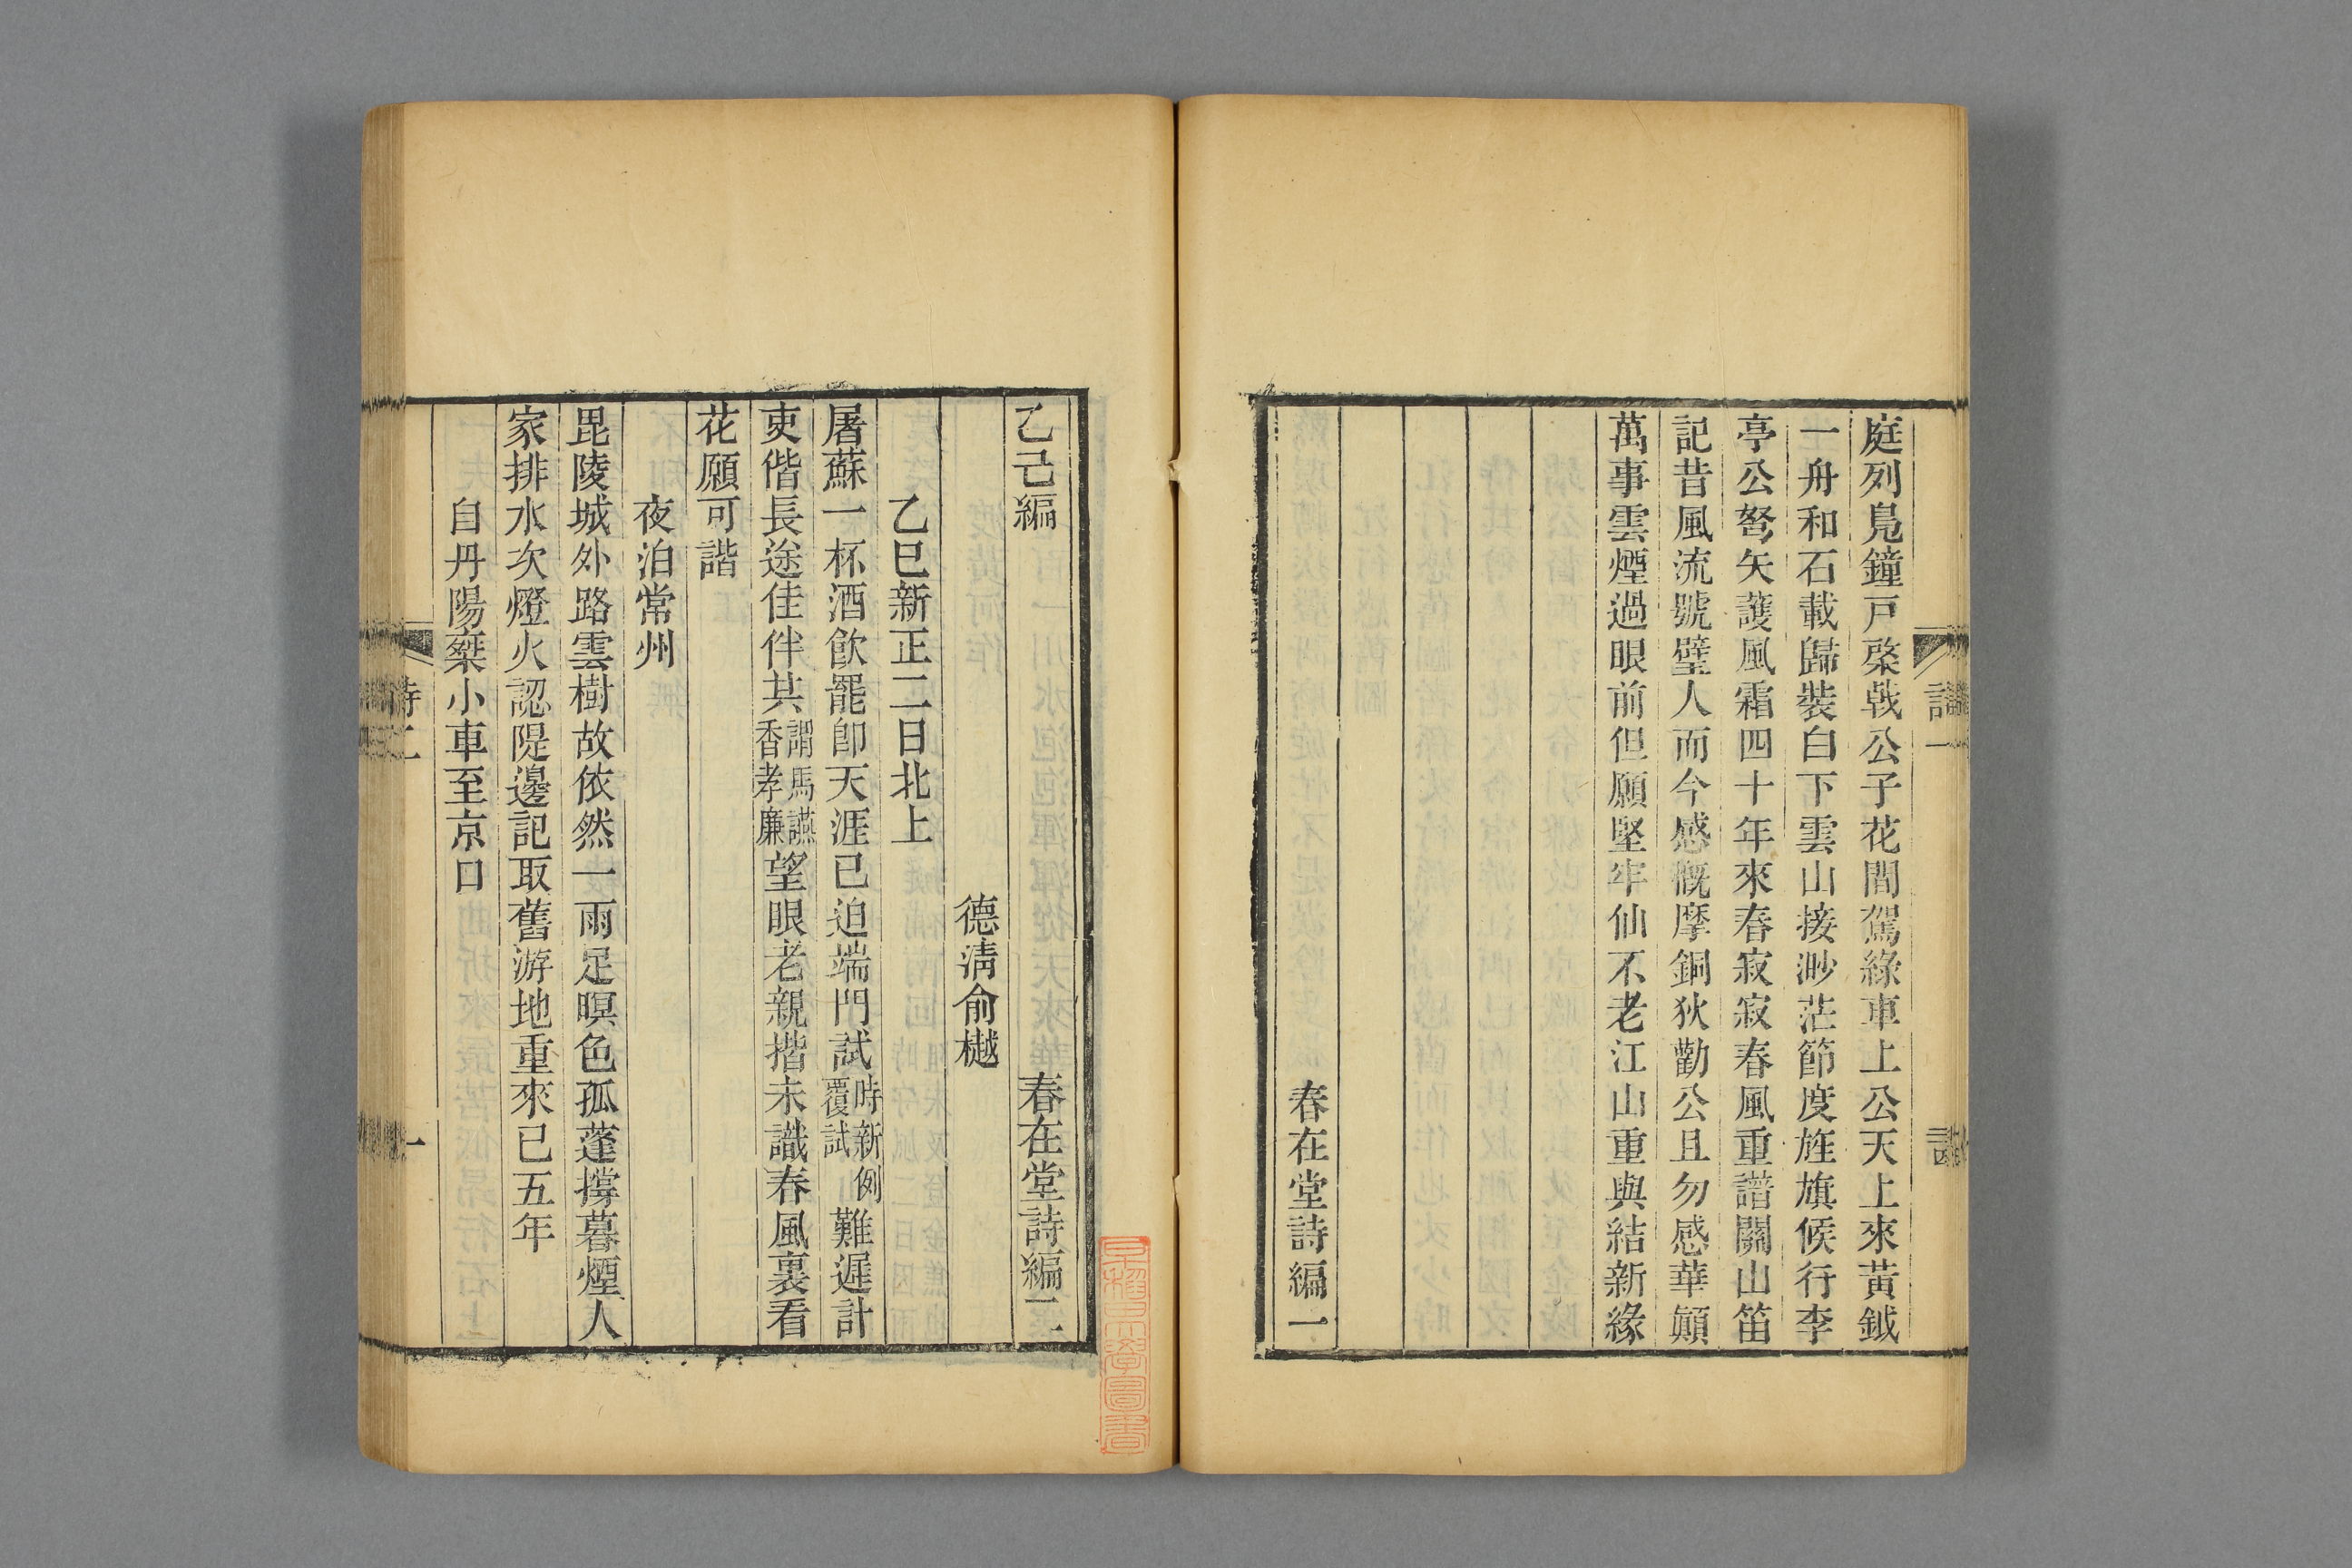 庭列鳧鐘戸棨戟公子花間駕綠車上公天上來黃鉞
一舟和石載歸裝白下雲山接渺茫節度旌旗候行李
亭公弩矢護風霜四十年來春寂寂春風重譜關山笛
記昔風流號璧人而今感慨摩銅狄勸公且勿感華顚
萬事雲煙過眼前但願堅牢仙不老江山重與結新緣
春在堂詩編一
乙己編　春在堂詩編二
德清俞樾
乙巳新正二日北上
屠蘇一杯酒飮罷卽天涯已迫端門試時新例覆試難遲計
吏偕長途佳伴共謂馬讌香孝廉望眼老親揩未識春風裏看
花願可諧
夜泊常州
毘陵城外路雲樹故依然一雨足暝色孤蓬撐暮煙人
家排水次燈火認隄邊記取舊游地重來已五年
自丹陽椉小車至京口
詩二
一
早稻田大學圖書